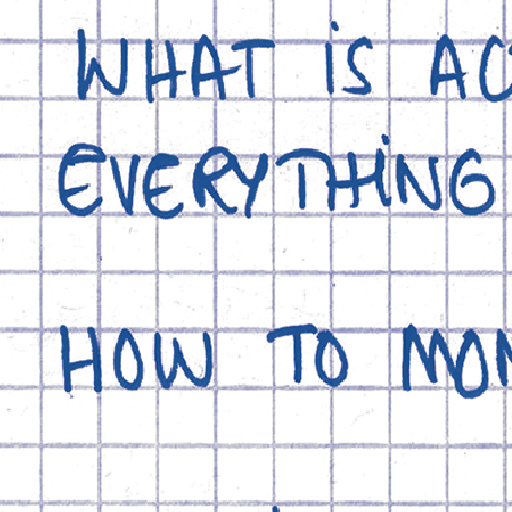 WHAT IS AC
EVERYTHING
HOW TO MON